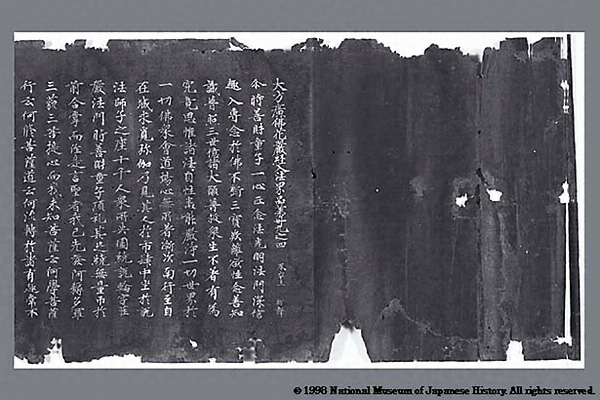 大方廣佛花嚴經入法界品第卅九之四
尒時善財童子一心正念法光明法門深信
趣入專念於佛不斷三寶歎離欲性念善知
識普照三世憶諸大願普救衆生不著有為
究竟思惟諸法自性悉能嚴淨一切世界於
一切佛衆會道場心無所著漸次南行至自
在城求覓弥伽乃見其人於市肆中坐於說
法師子之座十千人衆所共圍繞說輪字莊
嚴法門時善財童子頂禮其足繞無量帀於
前合掌而作是言聖者我已先發阿耨多羅
三藐三菩提心而我未知菩薩云何學菩薩
行云何脩菩薩道云何流轉於諸有趣常不
© 1998 National Museum of Japanese History. All rights reserved.